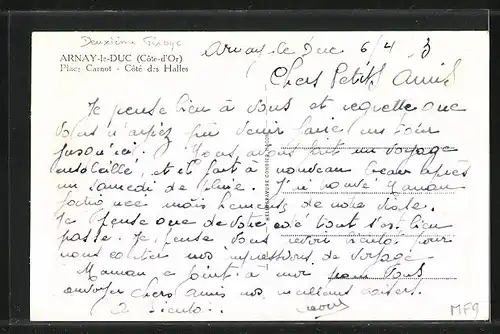 Deuxième Tirage
ARNAY-le-DUC (Côte-d'Or)
Place Carnot - Côté des Halles
Arnay-le-Duc 6/4
Chers Petits Amis
Je pense bien à vous et regrette que
vous n'ayiez pu venir faire un tour
jusqu'ici. Nous avons fait un voyage
ensoleillé, et il fait à nouveau beau après
un samedi de pluie. J'ai trouvé Maman
fatiguée mais heureuse de notre visite.
Je pense que de votre côté tout s'est bien
passé. Je pense vous revoir bientôt pour
nous conter nos impressions de voyage.
Maman se joint à moi pour vous
envoyer chers amis nos meilleurs baisers.
A bientôt.
MF9